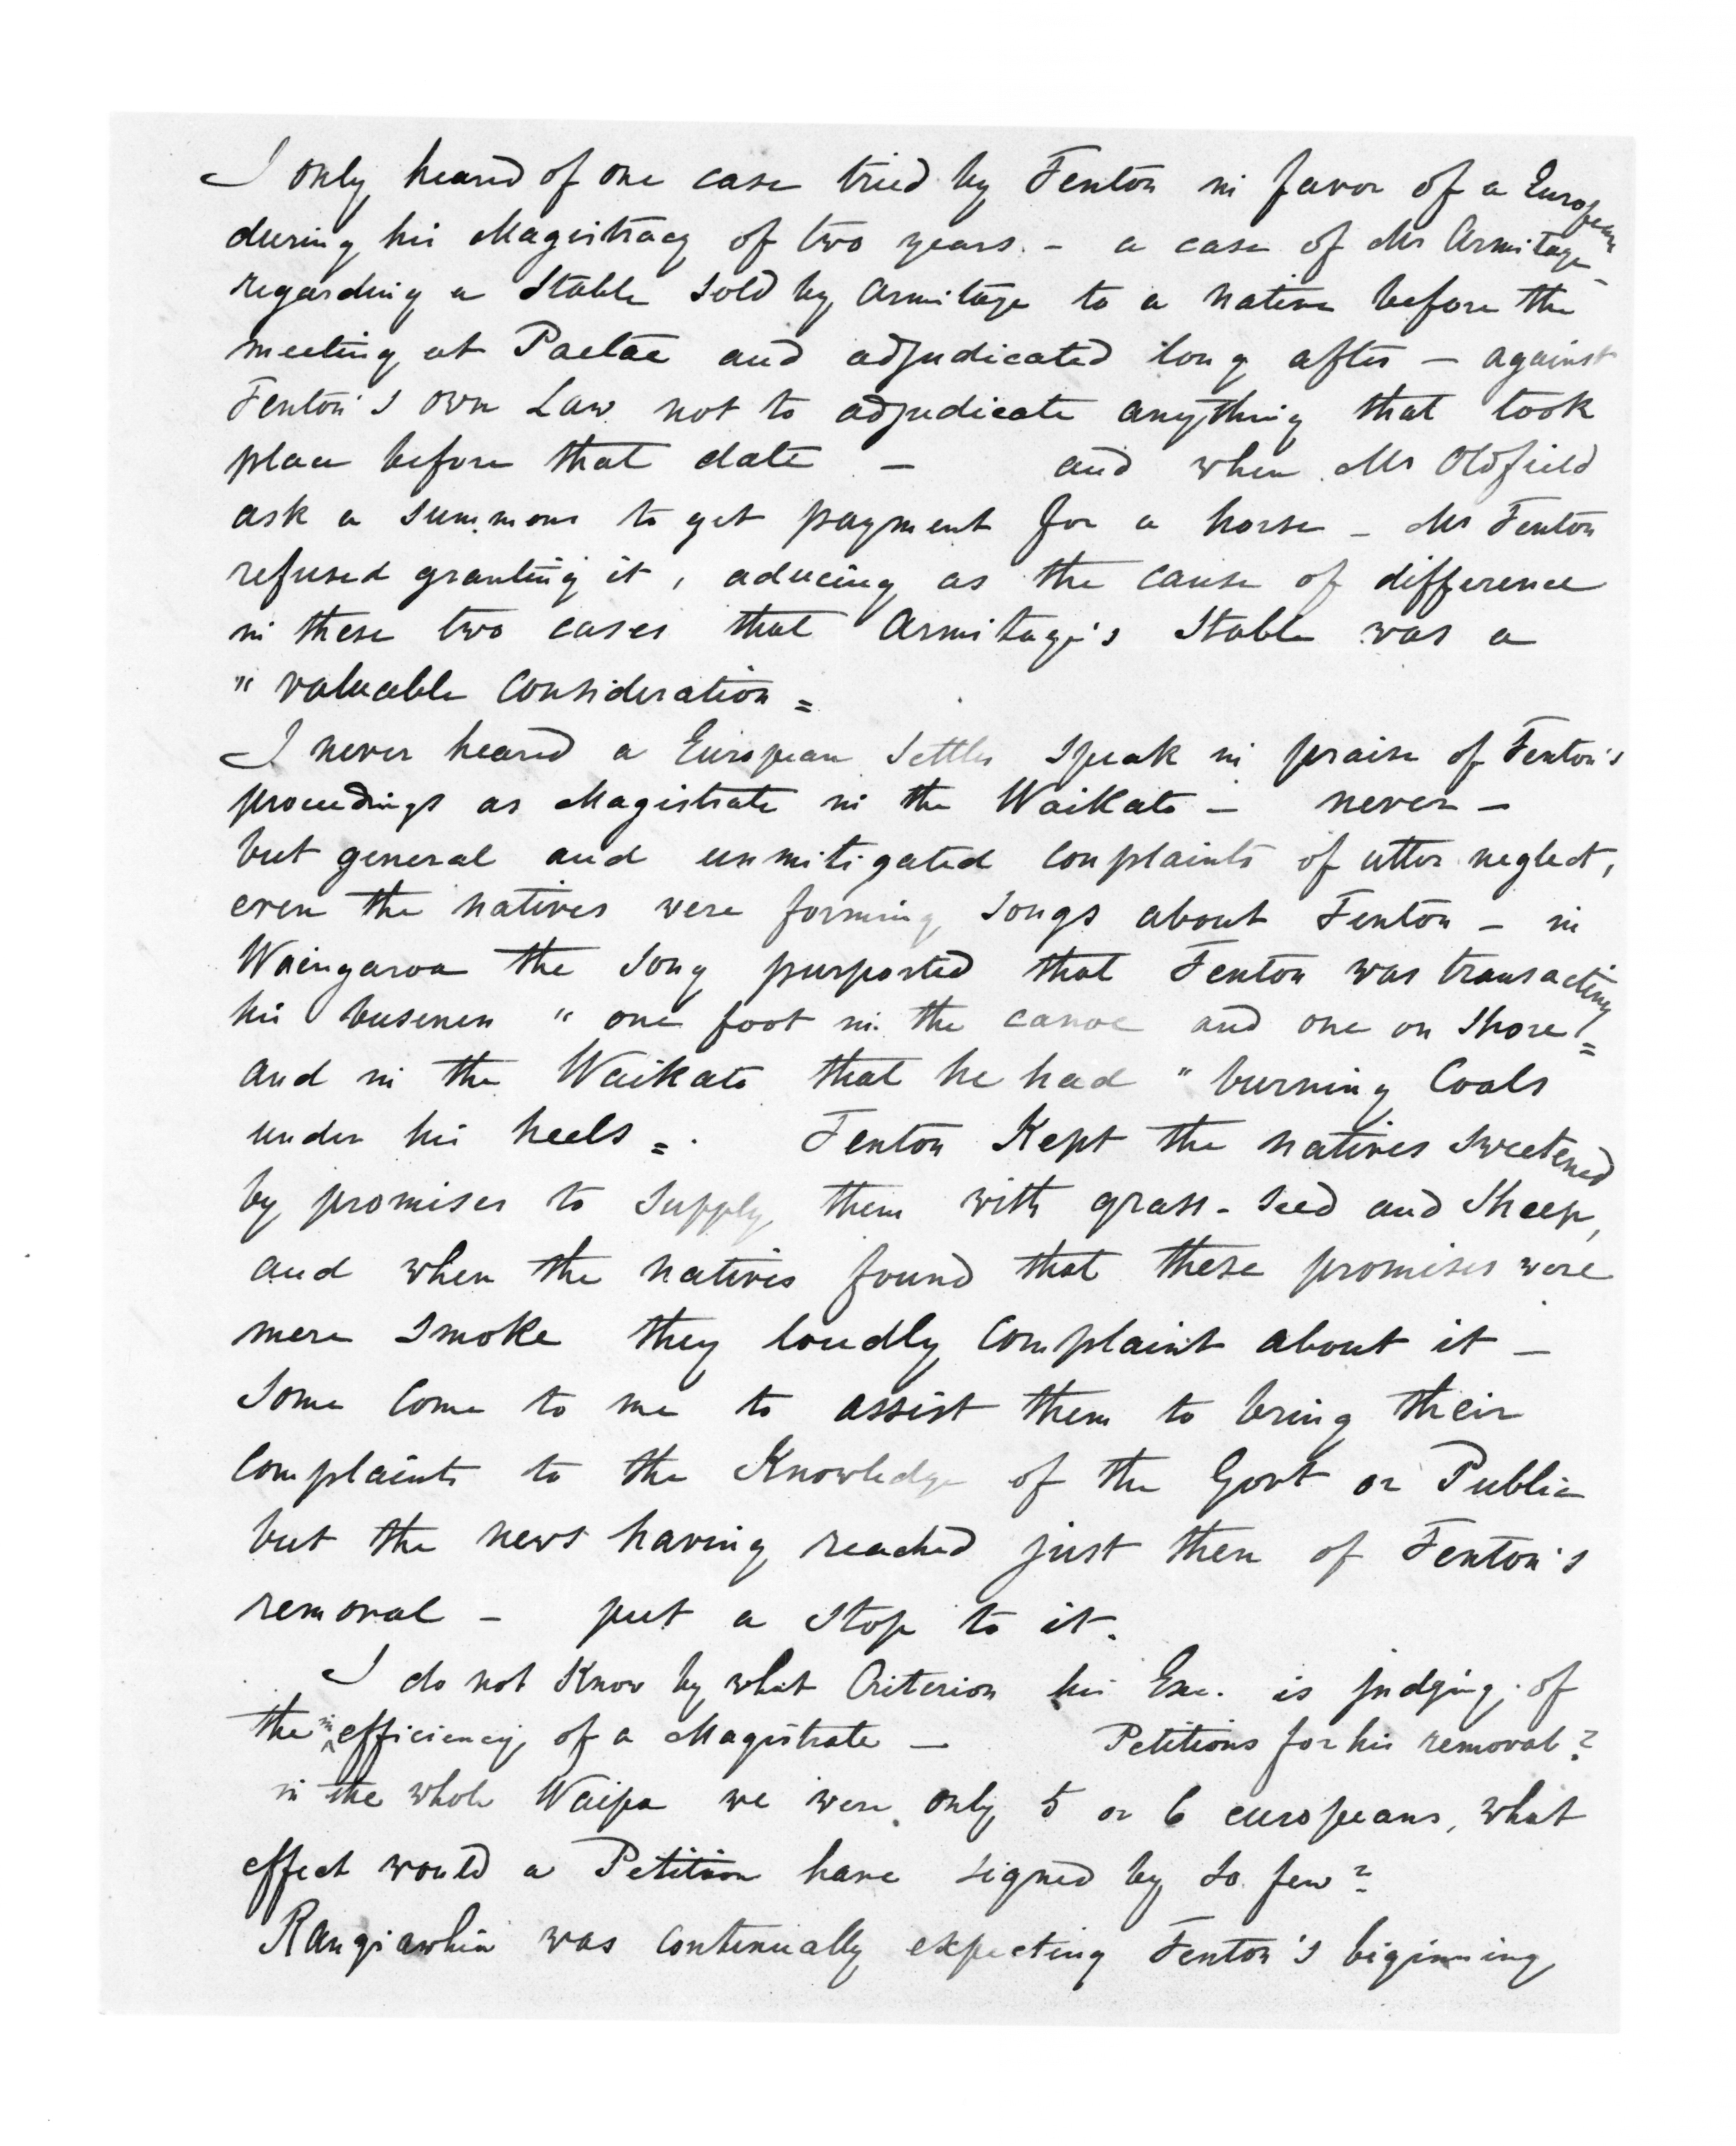 I only heard of one case tried by Fenton in favor of a European
during his Magistracy of two years. - a case of Mr Armitage
regarding a Stable sold by Armitage to a native before the
meeting at Paetae and adjudicated long after - against
Fenton's own Law not to adjudicate anything that took
place before that date - and when Mr Oldfield
ask a summons to get payment for a horse - Mr Fenton
refused granting it, aducing as the cause of difference
in these two cases that Armitage's Stable was a
" valuable consideration =
I never heard a European Settler speak in praise of Fenton's
proceedings as Magistrate in the Waikato - never -
but general and unmitigated complaints of utter neglect,
even the natives were forming songs about Fenton - in
Waingaroa the song purported that Fenton was transacting
his business " one foot in the canoe and one on shore =
and in the Waikato that he had " burning Coals
under his heels = . Fenton Kept the natives sweetened
by promises to supply them with grass-seed and Sheep,
and when the natives found that these promises were
mere smoke they loudly complaint about it -
some come to me to assist them to bring their
complaints to the Knowledge of the Govt or Public
but the news having reached just then of Fenton's
removal - put a stop to it.
I do not Know by what Criterion his Exc. is judging of
the inefficiency of a Magistrate - Petitions for his removal?
in the whole Waipa we were only 5 or 6 europeans, what
effect would a Petition have signed by so few?
Rangiawhia was continually expecting Fenton's biginning